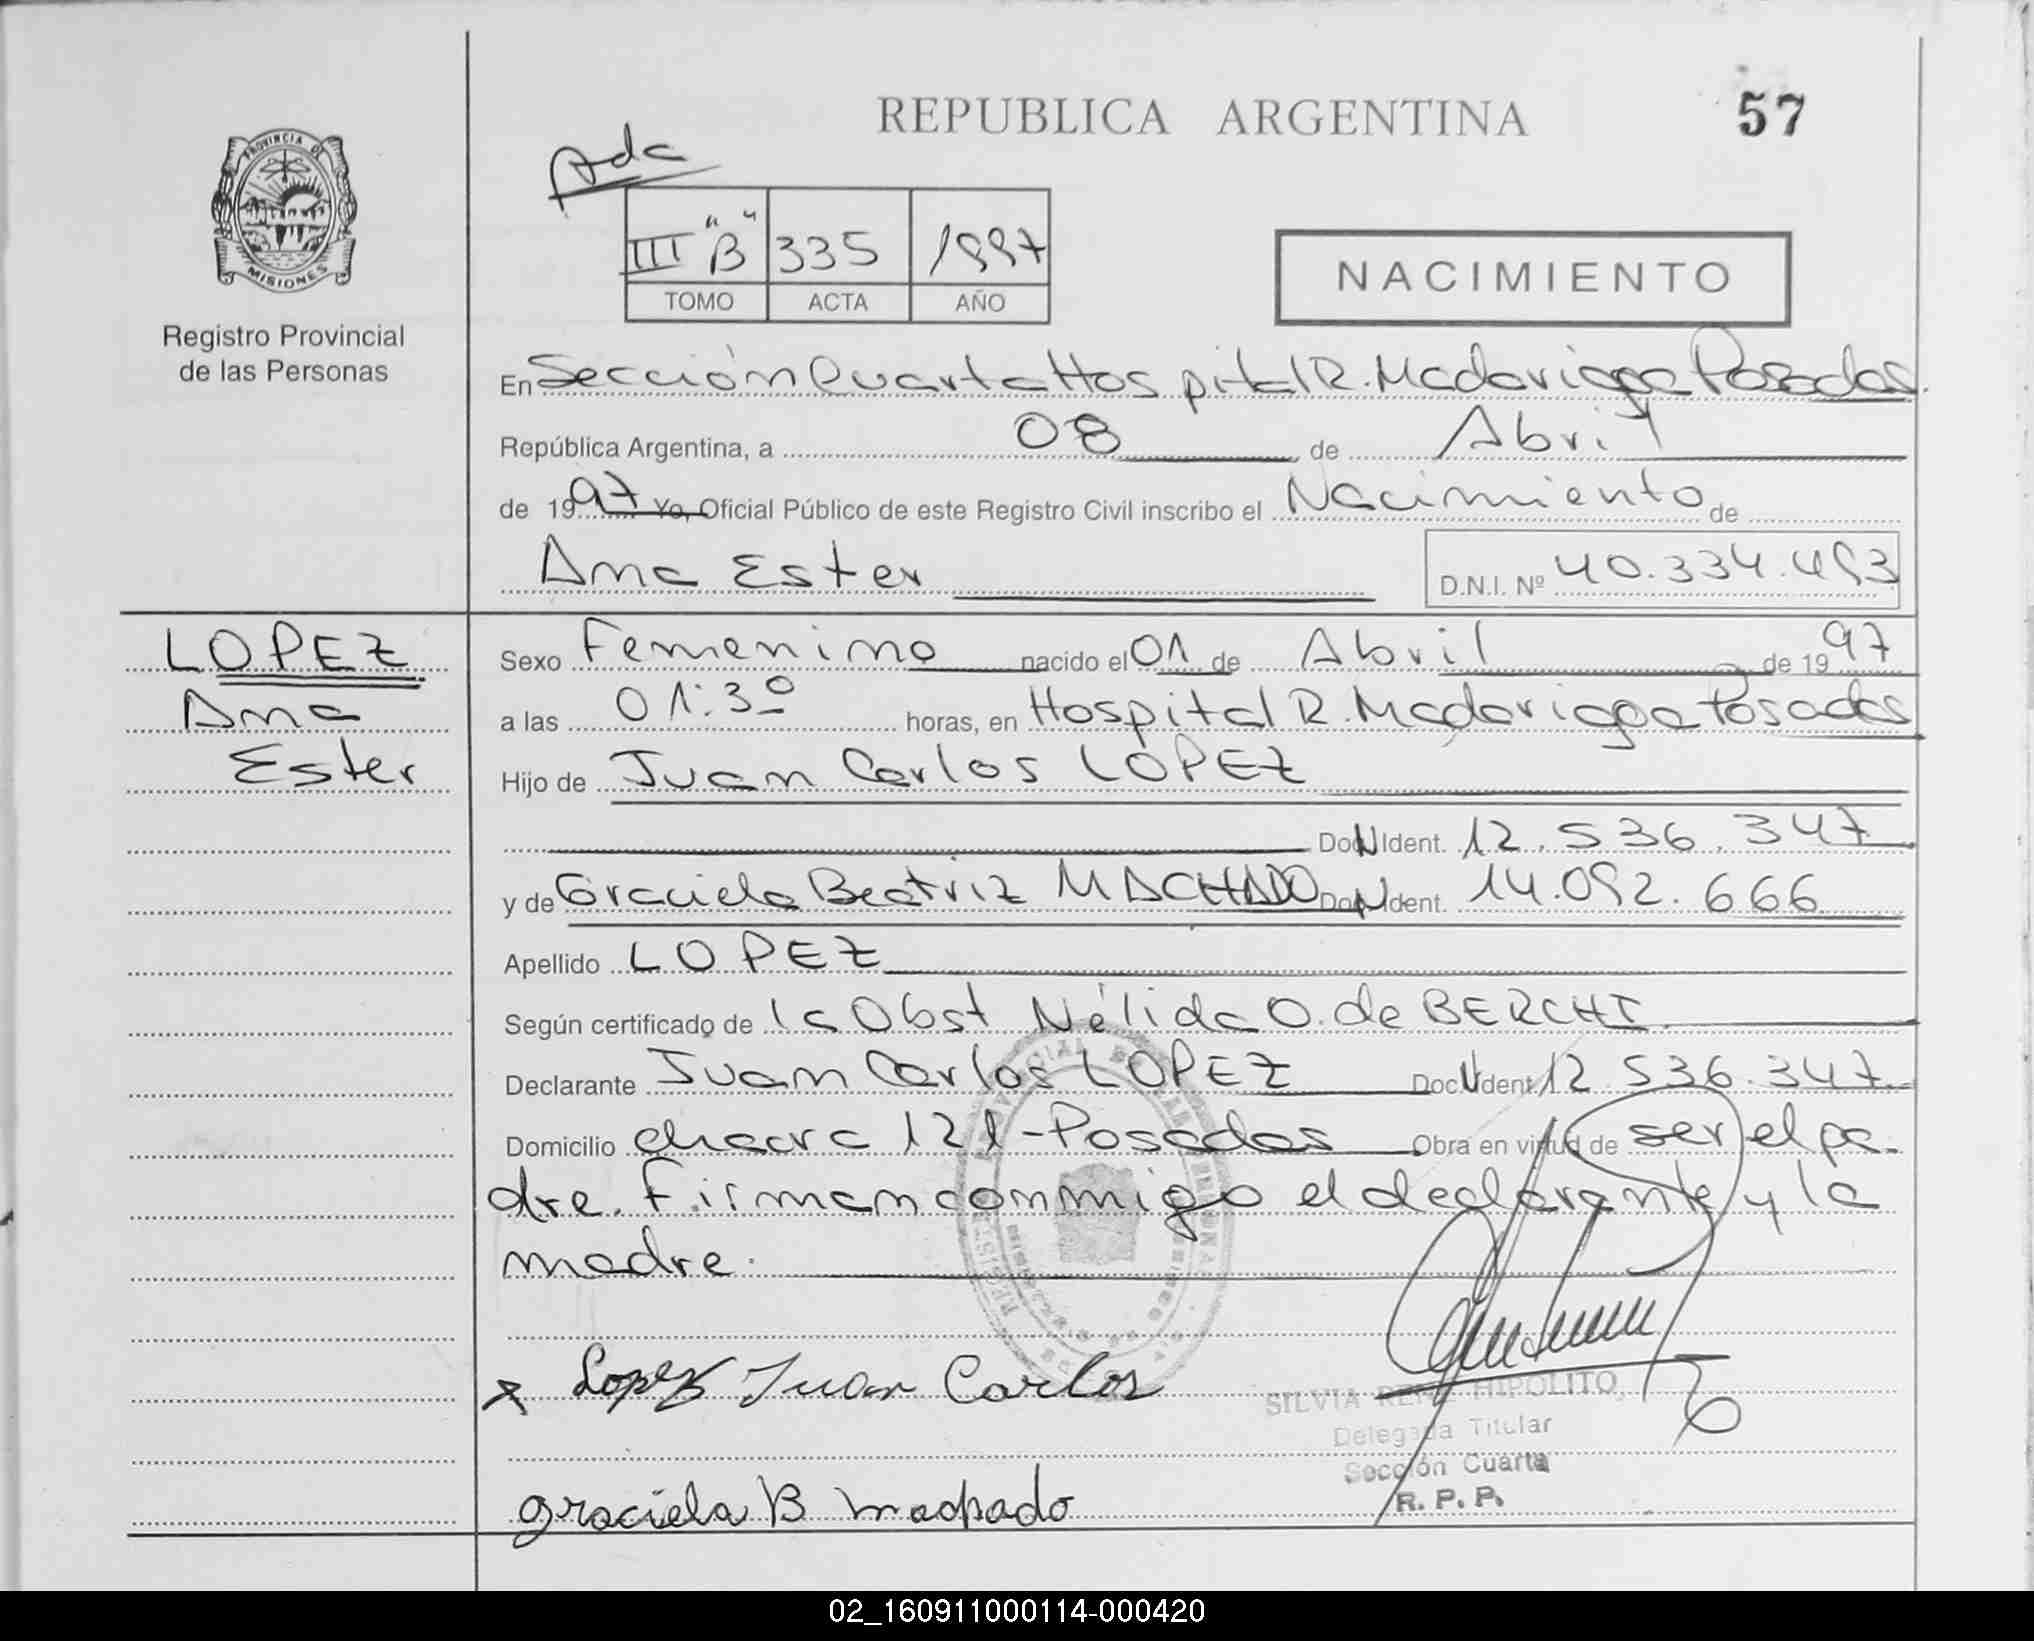 REPUBLICA ARGENTINA
57
PROVINCIA DE
MISIONES
Registro Provincial
de las Personas
III "B" 335 1997
TOMO ACTA AÑO
NACIMIENTO
En Sección Cuarta Hospital R. Madariaga Posadas.
República Argentina, a 08 de Abril
de 1997 Yo, Oficial Público de este Registro Civil inscribo el Nacimiento de
Ana Ester
D.N.I. Nº 40.334.493
LOPEZ
Ana
Ester
Sexo Femenino nacido el 01 de Abril de 1997
a las 01:30 horas, en Hospital R. Madariaga Posadas
Hijo de Juan Carlos LOPEZ
DocN Ident. 12.536.347
y de Graciela Beatriz MACHADO DocN Ident. 14.092.666
Apellido LOPEZ
Según certificado de la Obst Nélida O. de BERCHI.
Declarante Juan Carlos LOPEZ DocN Ident. 12.536.347
Domicilio chacra 121-Posadas Obra en virtud de ser el pa-
dre. Firman conmigo el declarante y la
madre.
x Lopez Juan Carlos
SILVIA RENE HIPOLITO
Delegada Titular
Sección Cuarta
R. P. P.
graciela B machado
02_160911000114-000420